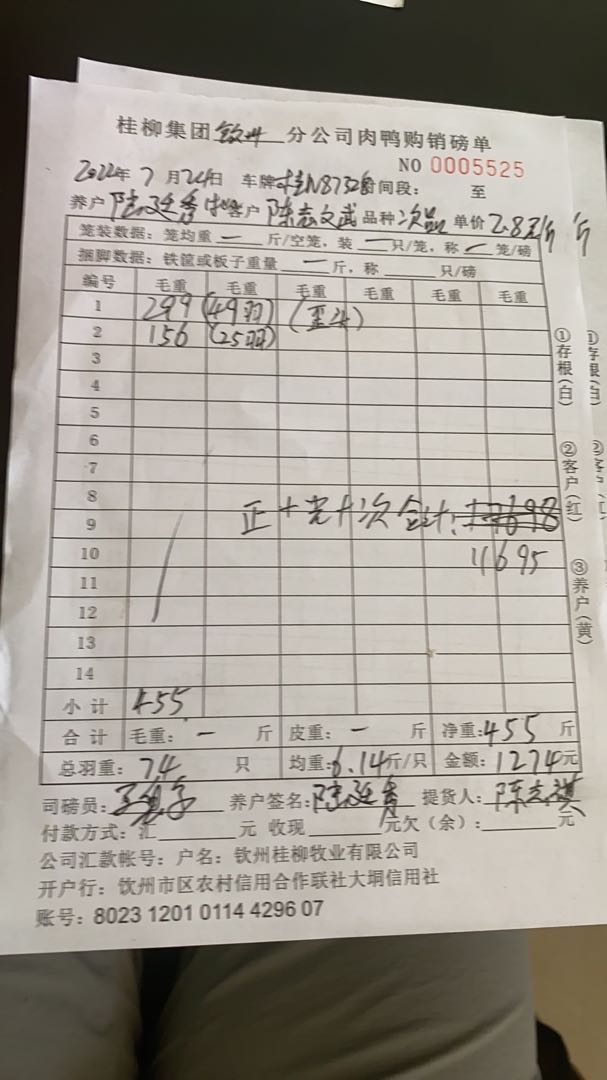 桂柳集团 钦州 分公司肉鸭购销磅单
NO 0005525
2022年 7 月 24日 车牌 时间段: 至
养户 客户 品种 次品 单价 2.8元/斤 斤
笼装数据: 笼均重 — 斤/空笼, 装 — 只/笼, 称 — 笼/磅
捆脚数据: 铁筐或板子重量 — 斤, 称 只/磅
编号 毛重 毛重 毛重 毛重 毛重 毛重
1 299 (49羽) (歪头)
2 156 (25羽)
3
4
5
6
7
8
9 正+光+次 合计:
10 11695
11
12
13
14
小计 455
合计 毛重: — 斤 皮重: — 斤 净重: 455 斤
总羽重: 74 只 均重: 6.14斤/只 金额: 1274元
司磅员: 养户签名: 提货人:
付款方式: 汇 元 收现 元欠(余): 元
公司汇款帐号: 户名: 钦州桂柳牧业有限公司
开户行: 饮州市区农村信用合作联社大垌信用社
账号: 8023 1201 0114 4296 07
①存根(白)
②客户(红)
③养户(黄)